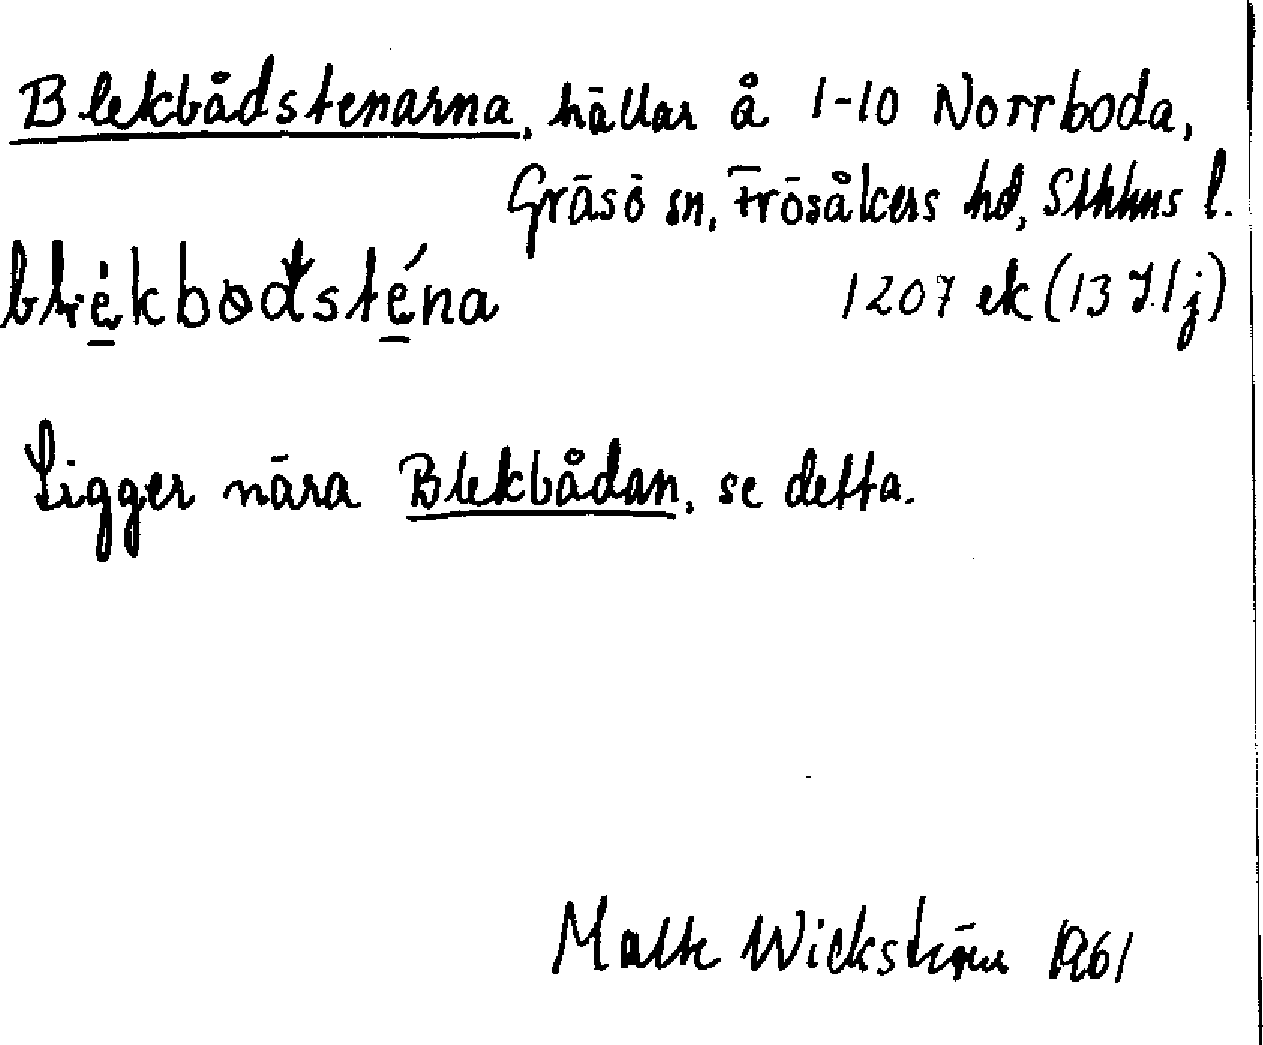 Blekbådstenarna, hällar å 1-10 Norrboda,
Gräsö sn, Frösåkers hd, Sthlms l.
1207 ek (13 I 1 j)
Ligger nära Blekbådan, se detta.
Malte Wickström 1961